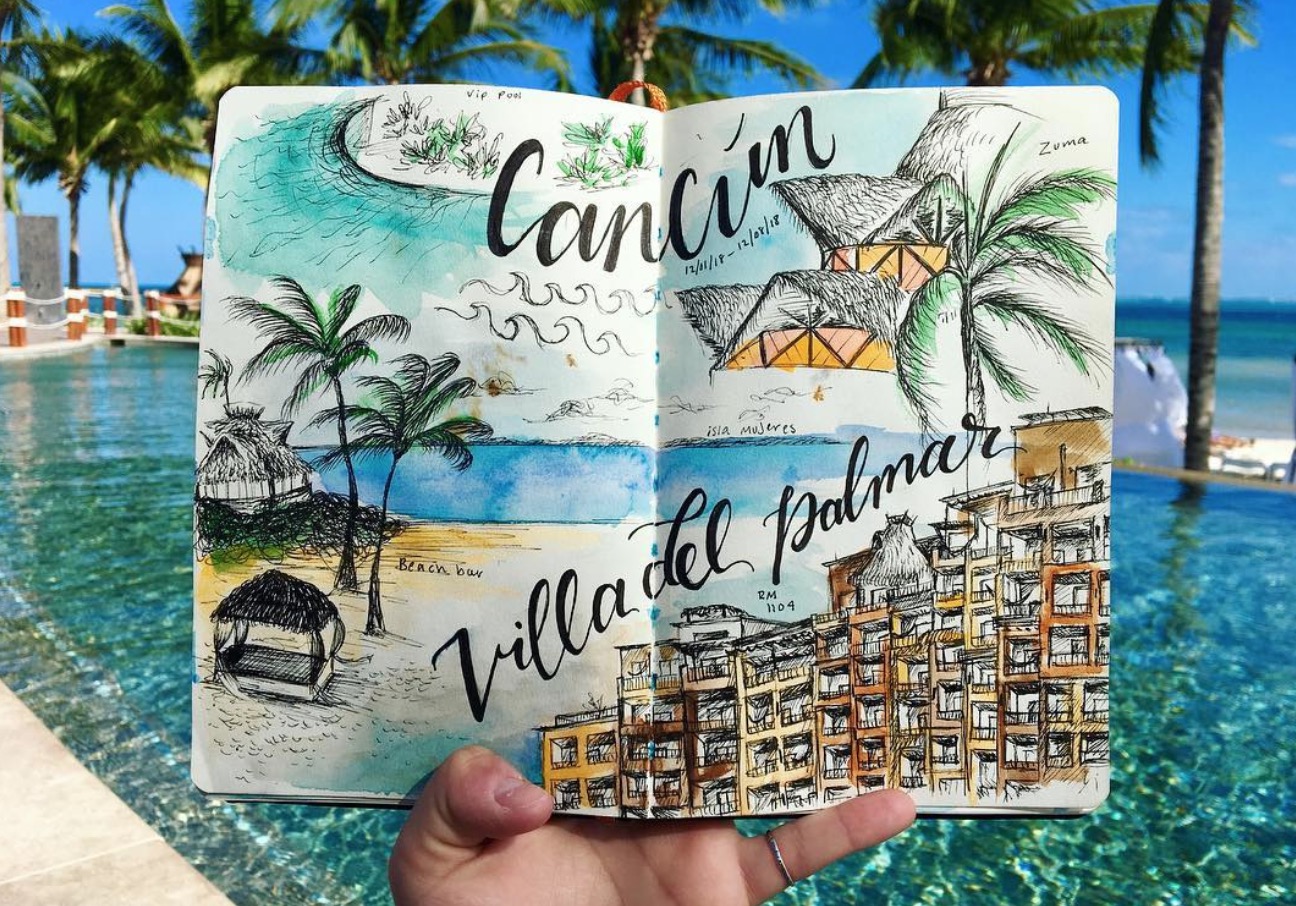 Vip Pool
Cancún
12/01/18 - 12/08/18
Zuma
isla mujeres
Villa del palmar
Beach bar
RM
1104